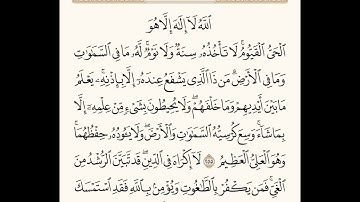 ٱللَّهُ لَآ إِلَٰهَ إِلَّا هُوَ
ٱلْحَىُّ ٱلْقَيُّومُ ۚ لَا تَأْخُذُهُۥ سِنَةٌ وَلَا نَوْمٌ ۚ لَّهُۥ مَا فِى ٱلسَّمَٰوَٰتِ
وَمَا فِى ٱلْأَرْضِ ۗ مَن ذَا ٱلَّذِى يَشْفَعُ عِندَهُۥٓ إِلَّا بِإِذْنِهِۦ ۚ يَعْلَمُ
مَا بَيْنَ أَيْدِيهِمْ وَمَا خَلْفَهُمْ ۖ وَلَا يُحِيطُونَ بِشَىْءٍ مِّنْ عِلْمِهِۦٓ إِلَّا
بِمَا شَآءَ ۚ وَسِعَ كُرْسِيُّهُ ٱلسَّمَٰوَٰتِ وَٱلْأَرْضَ ۖ وَلَا يَـُٔودُهُۥ حِفْظُهُمَا ۚ
وَهُوَ ٱلْعَلِىُّ ٱلْعَظِيمُ ۝ لَآ إِكْرَاهَ فِى ٱلدِّينِ ۖ قَد تَّبَيَّنَ ٱلرُّشْدُ مِنَ
ٱلْغَىِّ ۚ فَمَن يَكْفُرْ بِٱلطَّٰغُوتِ وَيُؤْمِنۢ بِٱللَّهِ فَقَدِ ٱسْتَمْسَكَ